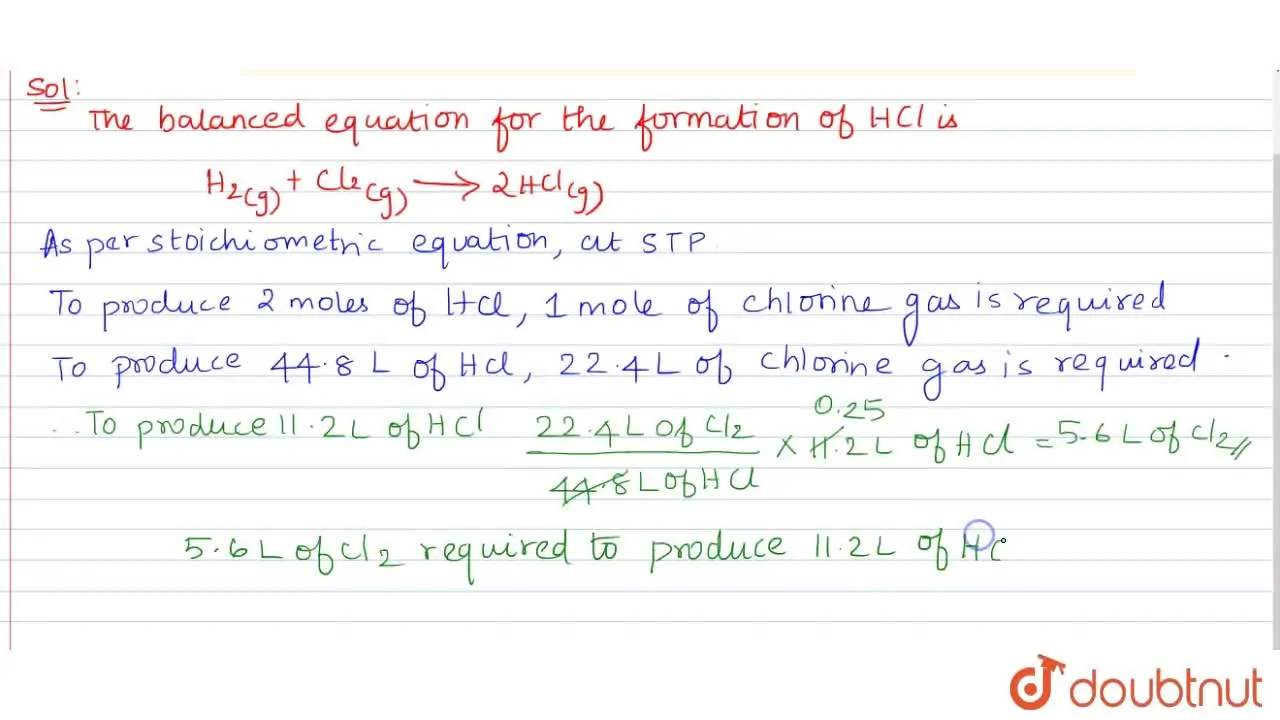 Sol:
The balanced equation for the formation of HCl is
H2(g) + Cl2(g) → 2HCl(g)
As per stoichiometric equation, at STP
To produce 2 moles of HCl, 1 mole of chlorine gas is required
To produce 44.8 L of HCl, 22.4L of chlorine gas is required.
∴ To produce 11.2L of HCl 22.4L of Cl2 / 44.8L of HCl × 11.2L of HCl = 5.6L of Cl2 //
0.25
5.6L of Cl2 required to produce 11.2L of HC
doubtnut